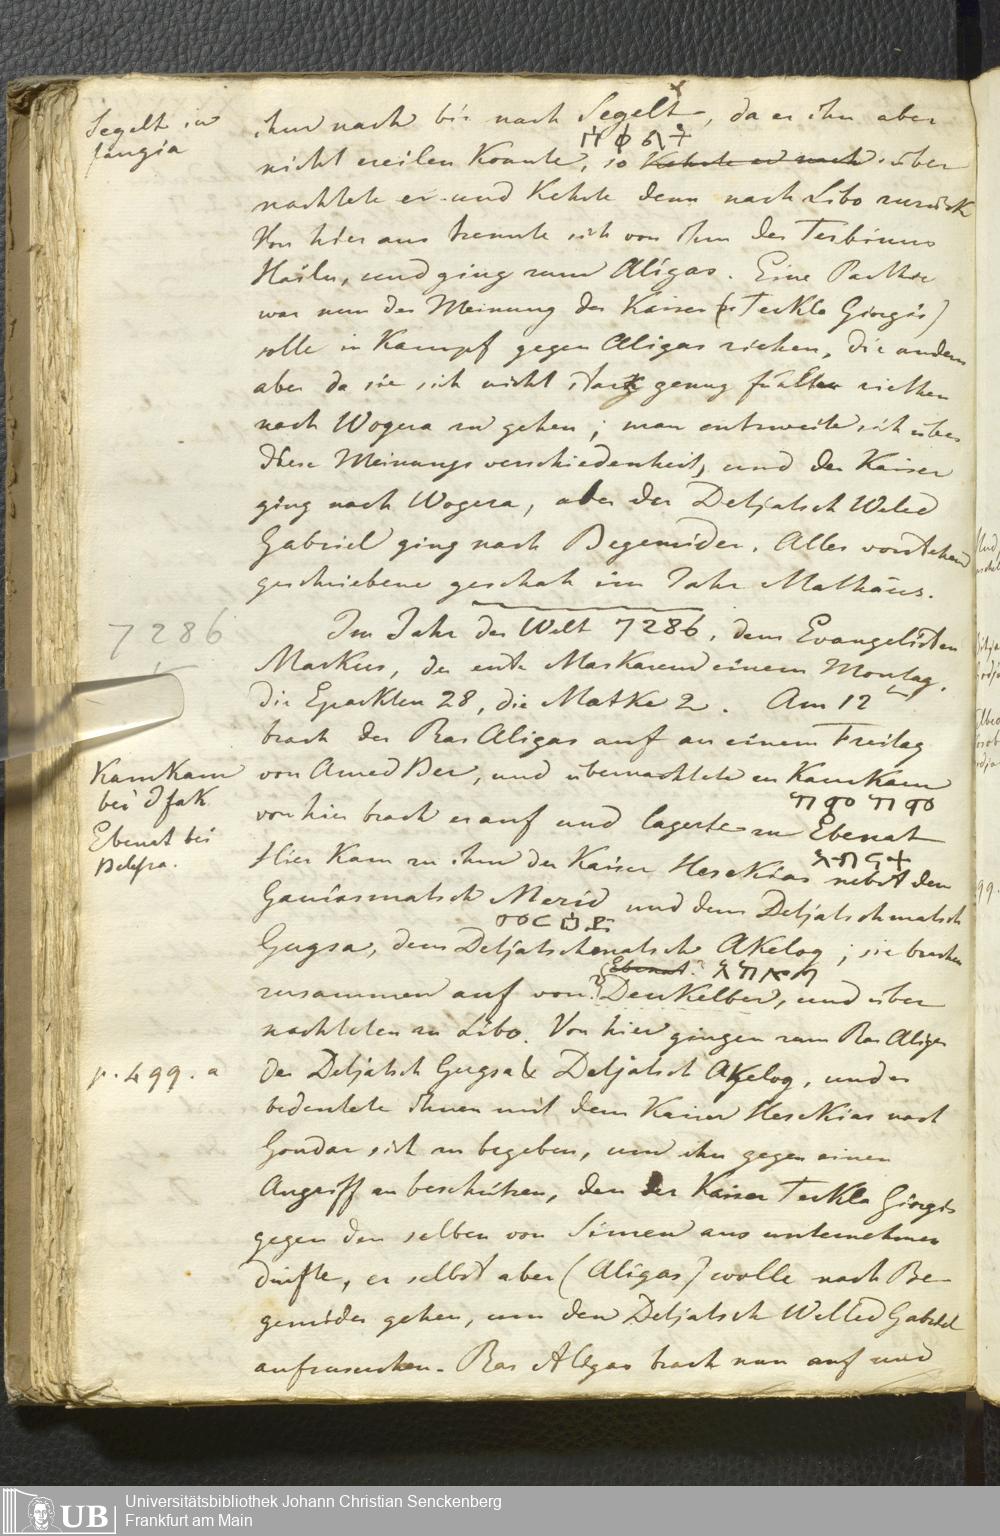 Segelt in
fangia
ihm nach bis nach Segelt, da er ihn aber
nicht ereilen Konnte, so Kehrte er nach über
nachtete er und Kehrte denn nach Libo zurück
Von hier aus trennte sich von ihm der Terbinus
Hailu, und ging zum Aligas. Eine Parthie
war nun der Meinung der Kaiser (Teckla Giorgis)
solle in Kampf gegen Aligas ziehen, die andern
aber da sie sich nicht stark genug fühlten riethen
nach Wogera zu gehen; man entzweite sich über
diese Meinungsverschiedenheit, und der Kaiser
ging nach Wogera, aber der Detjatsch Weled
Gabriel ging nach Begemider. Alles vorstehend
geschriebene geschah im Jahr Mathäus.
7286
Im Jahr der Welt 7286, dem Evangelisten
Markus, der erste Maskarem einem Montag,
die Epackten 28, die Matke 2. Am 12
brach der Ras Aligas auf an einem Freitag
KamKam
bei Ifak
von Amed Ber, und übernachtete in KamKam
ከምከም
Ebenat bei
Belesa.
von hier brach er auf und lagerte zu Ebenat
እብናት
Hier Kam zu ihm der Kaiser Heseckias nebst dem
Ganíasmatsch Merid und dem Detjatschmatsch
Gugsa, dem Detjatschmatsch Akelog; sie brachen
Ebenat?
zusammen auf von Denkelber, und über
nachteten zu Libo. Von hier gingen zum Ras Aligas
p. 499. a
der Detjatsch Gugsa & Detjatsch Akelog, und er
bedeutete ihnen mit dem Kaiser Heseckias nach
Gondar sich zu begeben, um ihn gegen einen
Angriff zu beschützen, den der Kaiser Teckla Giorgis
gegen den selben von Simen aus unternehmen
dürfte, er selbst aber (Aligas) wolle nach Be-
gemider gehen, um den Detjatsch Welled Gabriel
aufzusuchen. Ras Aligas brach nun auf und
UB
Universitätsbibliothek Johann Christian Senckenberg
Frankfurt am Main